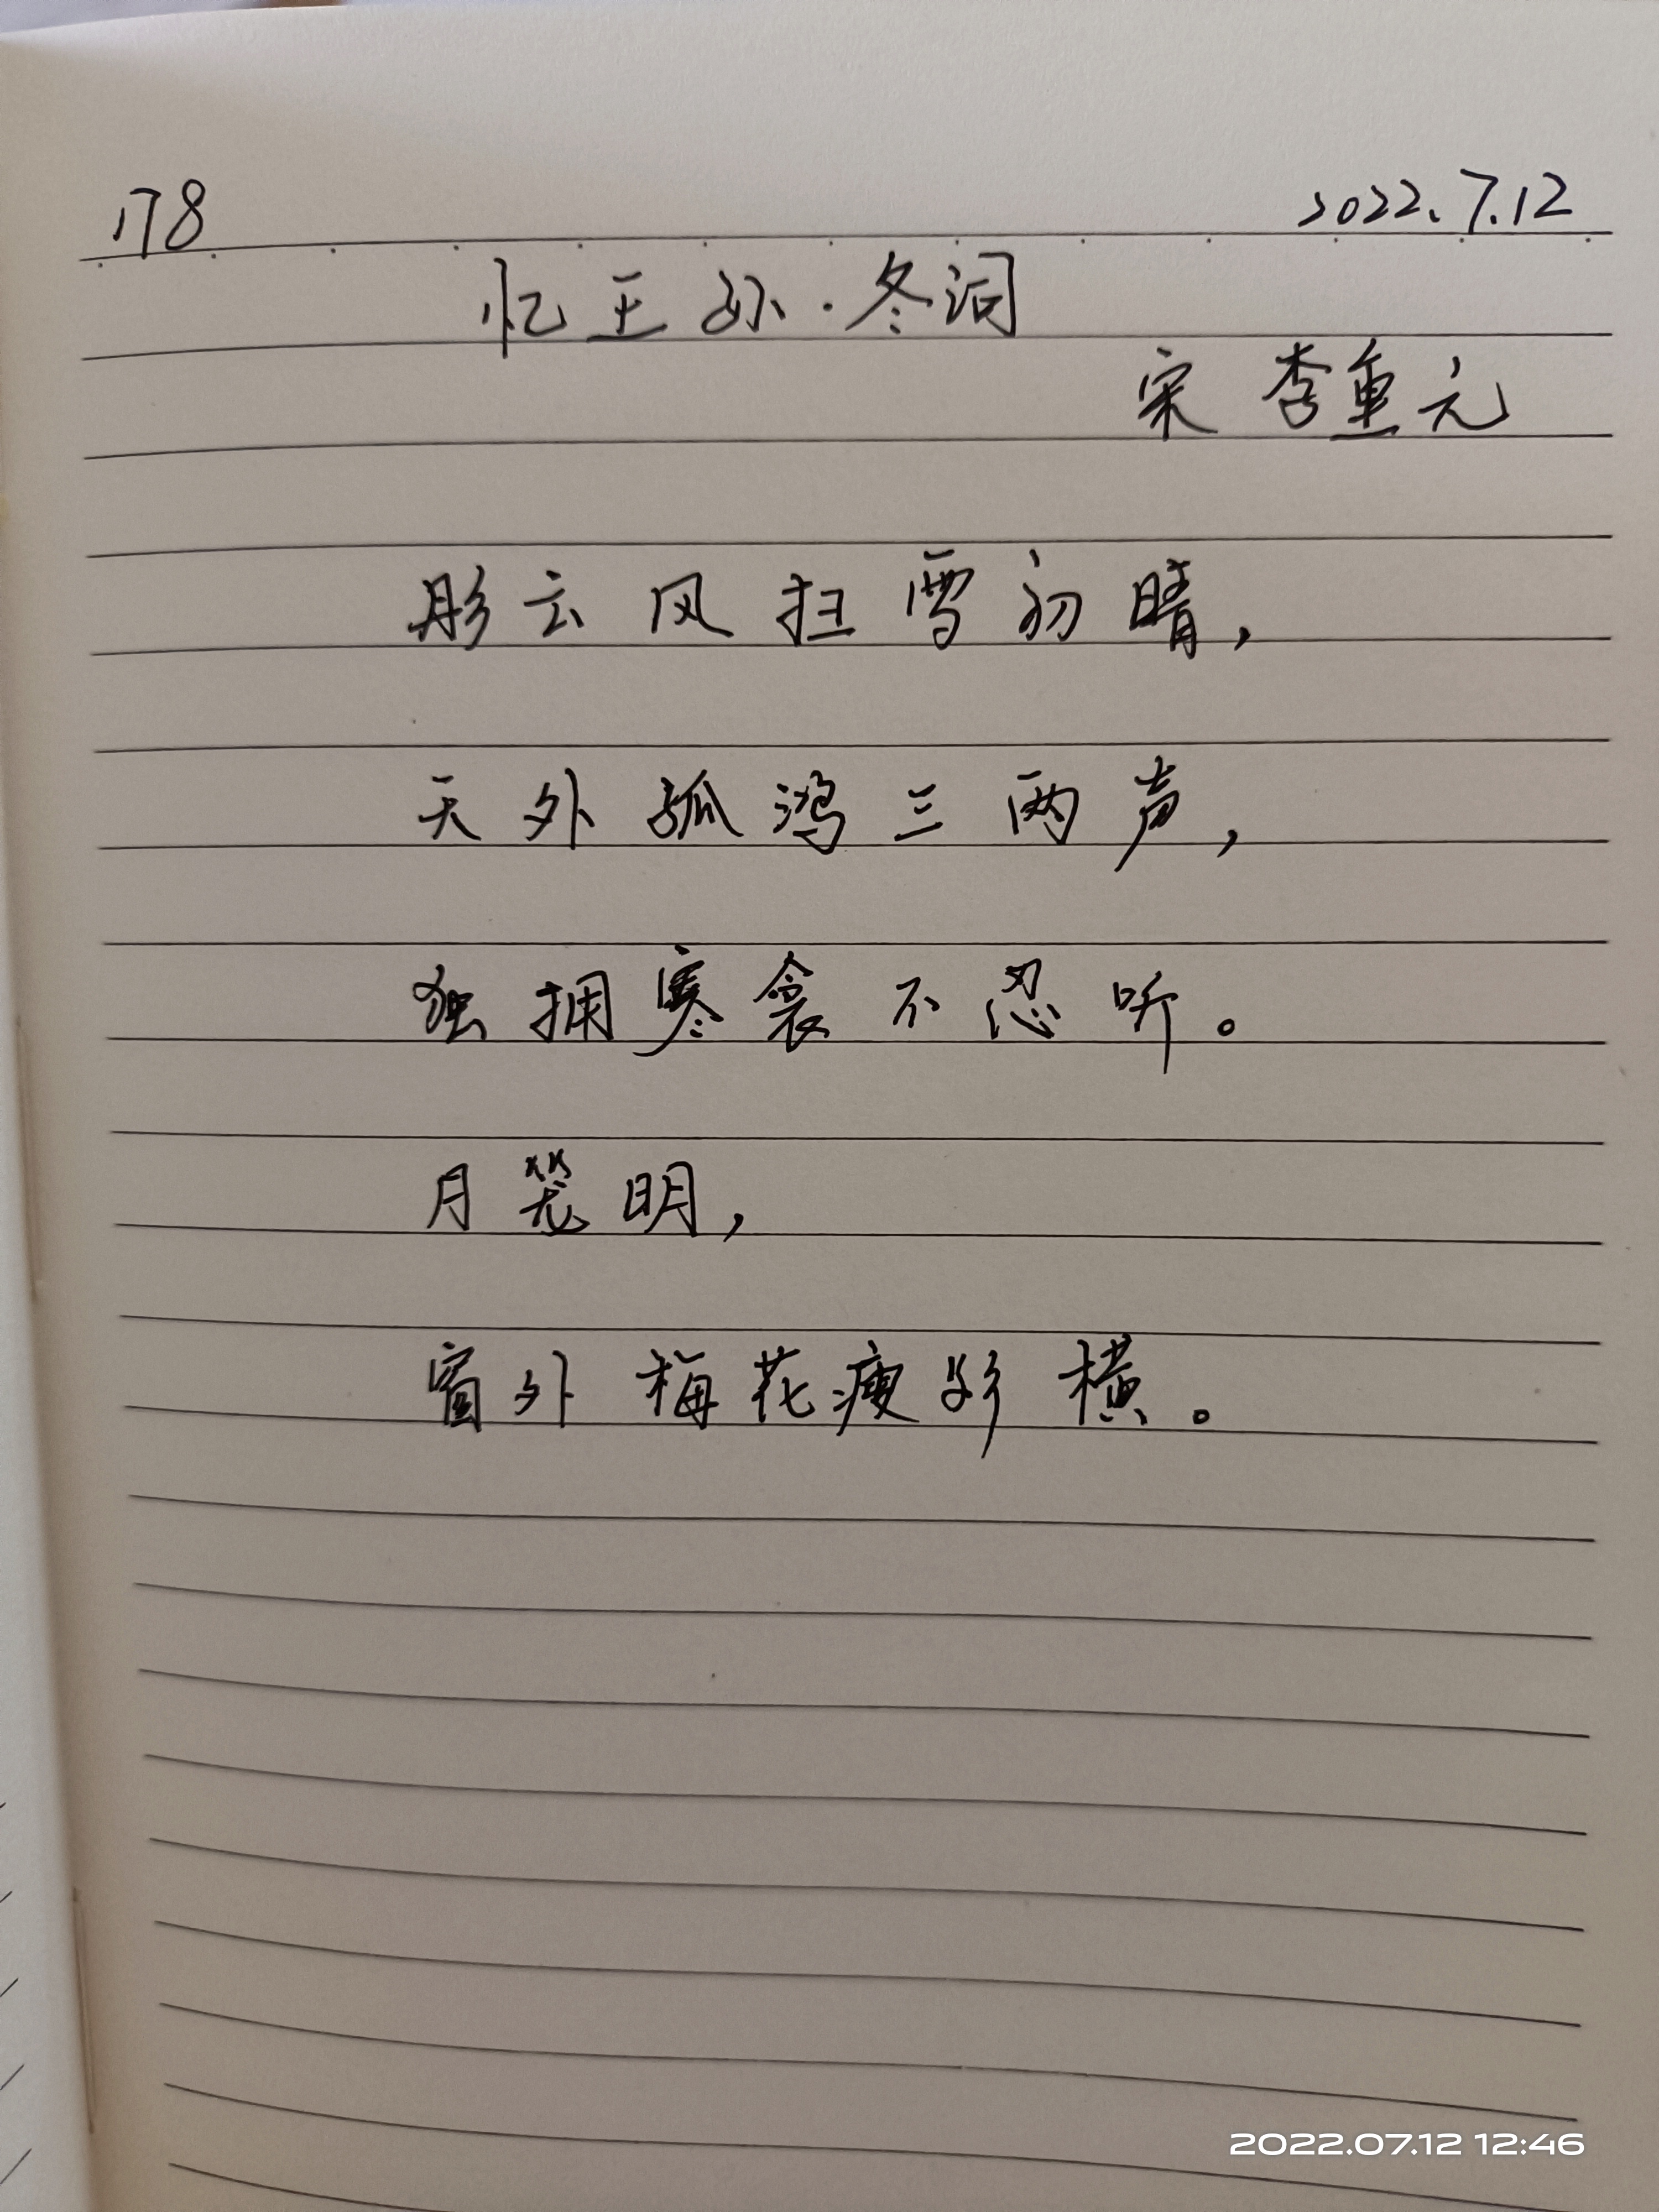 178 2022.7.12
忆王孙·冬词
宋 李重元
彤云风扫雪初晴，
天外孤鸿三两声，
独拥寒衾不忍听。
月笼明，
窗外梅花瘦影横。
2022.07.12 12:46